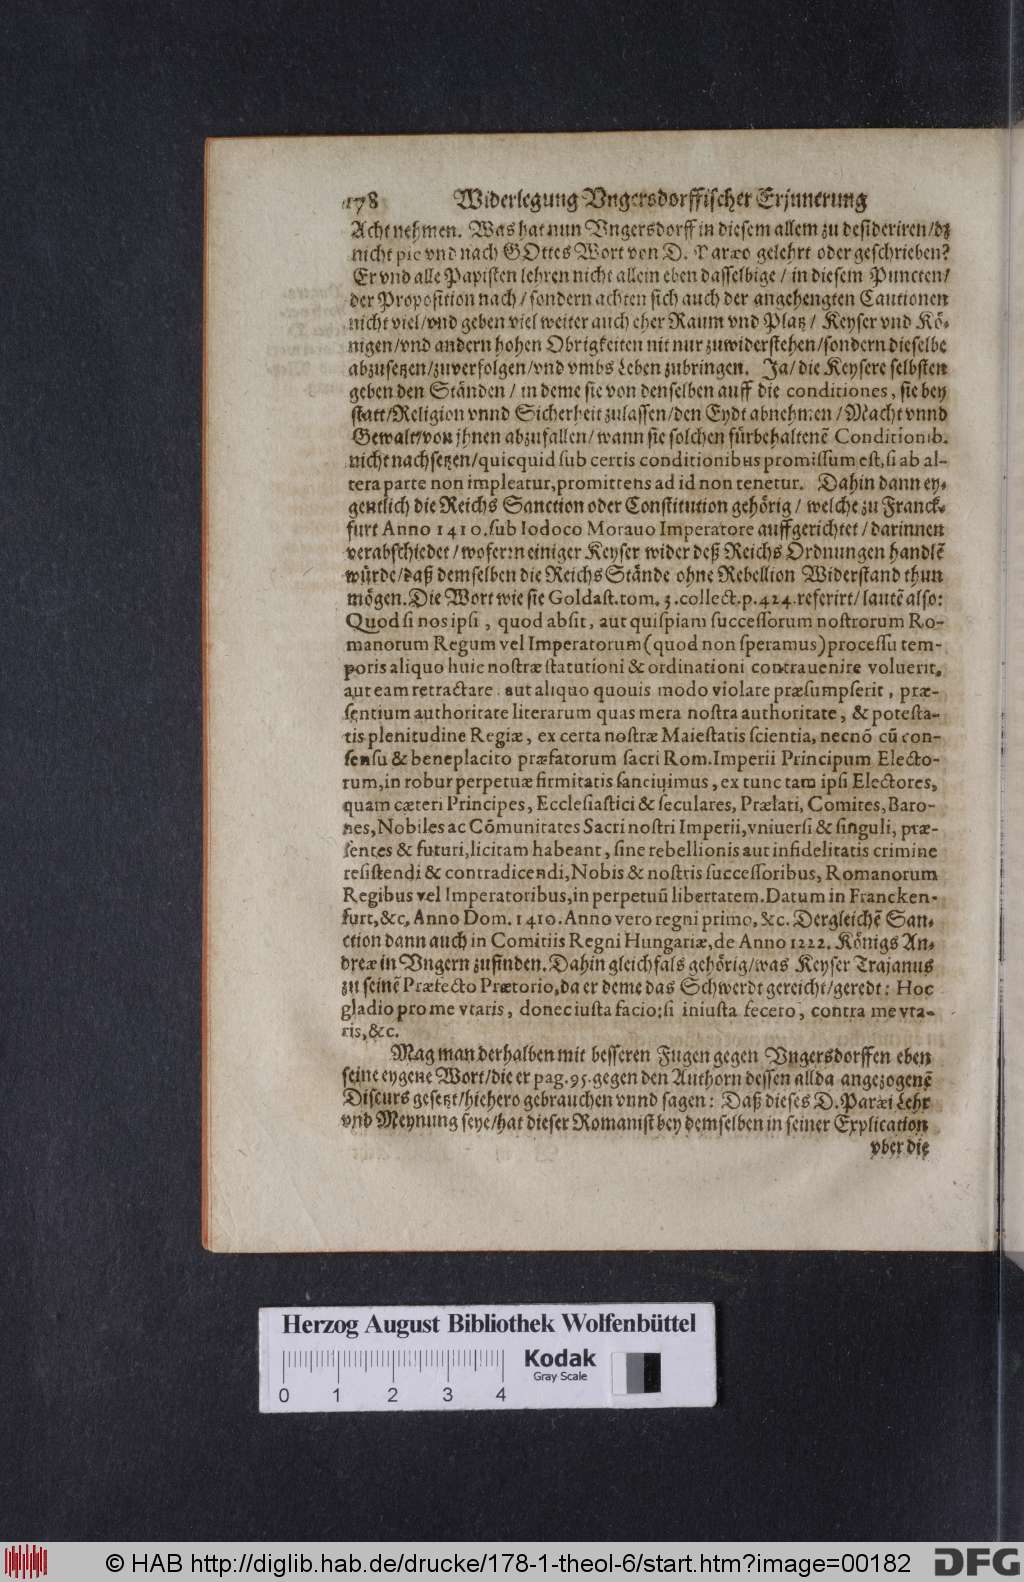 178 Widerlegung Vngersdorffischer Erjnnerung
Acht nehmen. Was hat nun Vngersdorff in diesem allem zu desideriren/dz
nicht pie vnd nach GOttes Wort von D. Paræo gelehrt oder geschrieben?
Er vnd alle Papisten lehren nicht allein eben dasselbige / in diesem Puncten/
der Proposition nach / sondern achten sich auch der angehengten Cautionen
nicht viel/vnd geben viel weiter auch eher Raum vnd Platz / Keyser vnd Kö-
nigen/vnd andern hohen Obrigkeiten nit nur zuwiderstehen/sondern dieselbe
abzusetzen/zuverfolgen/vnd vmbs Leben zubringen. Ja/ die Keysere selbsten
geben den Ständen / in deme sie von denselben auff die conditiones, sie bey
statt/Religion vnnd Sicherheit zulassen/den Eydt abnehmen / Macht vnnd
Gewalt/von jhnen abzufallen/wann sie solchen fürbehaltenē Conditionib.
nicht nachsetzen/quicquid sub certis conditionibus promissum est, si ab al-
tera parte non impleatur, promittens ad id non tenetur. Dahin dann ey-
gentlich die Reichs Sanction oder Constitution gehörig / welche zu Franck-
furt Anno 1410. sub Iodoco Morauo Imperatore auffgerichtet / darinnen
verabschiedet / wofern einiger Keyser wider deß Reichs Ordnungen handlē
würde/daß demselben die Reichs Stände ohne Rebellion Widerstand thun
mögen. Die Wort wie sie Goldast. tom. 3. collect. p. 424. referirt/ lautē also:
Quod si nos ipsi, quod absit, aut quispiam successorum nostrorum Ro-
manorum Regum vel Imperatorum (quod non speramus) processu tem-
poris aliquo huic nostræ statutioni & ordinationi contrauenire voluerit,
aut eam retractare. aut aliquo quouis modo violare præsumpserit, præ-
sentium authoritate literarum quas mera nostra authoritate, & potesta-
tis plenitudine Regiæ, ex certa nostræ Maiestatis scientia, necnō cū con-
sensu & beneplacito præfatorum sacri Rom. Imperii Principum Electo-
rum, in robur perpetuæ firmitatis sanciuimus, ex tunc tam ipsi Electores,
quam cæteri Principes, Ecclesiastici & seculares, Prælati, Comites, Baro-
nes, Nobiles ac Cōmunitates Sacri nostri Imperii, vniuersi & singuli, præ-
sentes & futuri, licitam habeant, sine rebellionis aut infidelitatis crimine
resistendi & contradicendi, Nobis & nostris successoribus, Romanorum
Regibus vel Imperatoribus, in perpetuū libertatem. Datum in Francken-
furt, &c, Anno Dom. 1410. Anno vero regni primo, &c. Dergleichē San-
ction dann auch in Comitiis Regni Hungariæ, de Anno 1222. Königs An-
dreæ in Vngern zufinden. Dahin gleichfals gehörig/was Keyser Trajanus
zu seinē Præfecto Prætorio, da er deme das Schwerdt gereicht/geredt: Hoc
gladio pro me vtaris, donec iusta facio: si iniusta fecero, contra me vta-
ris, &c.
Mag man derhalben mit besseren Fugen gegen Vngersdorffen eben
seine eygene Wort/die er pag. 95. gegen den Authorn dessen allda angezogenē
Discurs gesetzt/hiehero gebrauchen vnnd sagen: Daß dieses D. Paræi Lehr
vnd Meynung seye/hat dieser Romanist bey demselben in seiner Explication
vber die
Herzog August Bibliothek Wolfenbüttel
0 1 2 3 4
Kodak
Gray Scale
© HAB http://diglib.hab.de/drucke/178-1-theol-6/start.htm?image=00182
DFG